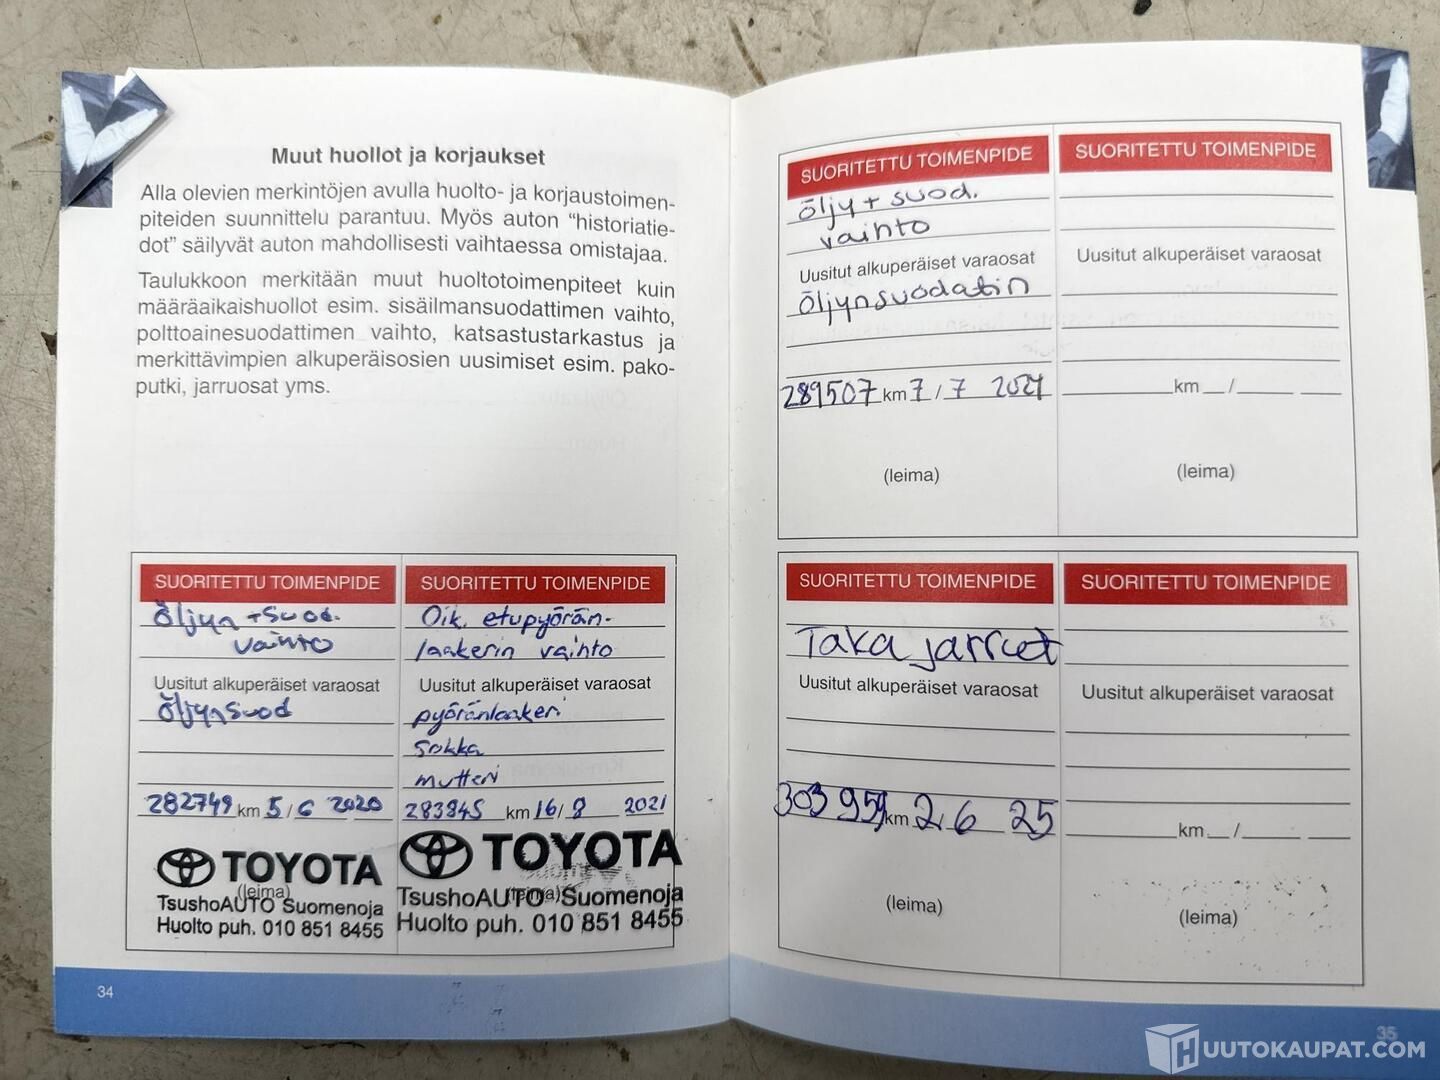 Muut huollot ja korjaukset
Alla olevien merkintöjen avulla huolto- ja korjaustoimen-
piteiden suunnittelu parantuu. Myös auton "historiatie-
dot" säilyvät auton mahdollisesti vaihtaessa omistajaa.
Taulukkoon merkitään muut huoltotoimenpiteet kuin
määräaikaishuollot esim. sisäilmansuodattimen vaihto,
polttoainesuodattimen vaihto, katsastustarkastus ja
merkittävimpien alkuperäisosien uusimiset esim. pako-
putki, jarruosat yms.
SUORITETTU TOIMENPIDE
öljyn + suod.
vaihto
Uusitut alkuperäiset varaosat
öljynsuod
282749 km 5/6 2020
TOYOTA
(leima)
TsushoAUTO Suomenoja
Huolto puh. 010 851 8455
SUORITETTU TOIMENPIDE
Oik. etupyörän-
laakerin vaihto
Uusitut alkuperäiset varaosat
pyöränlaakeri
sokka
mutteri
283845 km 16/8 2021
TOYOTA
(leima)
TsushoAUTO Suomenoja
Huolto puh. 010 851 8455
34
SUORITETTU TOIMENPIDE
öljy + suod.
vaihto
Uusitut alkuperäiset varaosat
öljynsuodatin
289507 km 7/7 2021
(leima)
SUORITETTU TOIMENPIDE
Uusitut alkuperäiset varaosat
km /
(leima)
SUORITETTU TOIMENPIDE
Taka jarrut
Uusitut alkuperäiset varaosat
303 959 km 2.6 25
(leima)
SUORITETTU TOIMENPIDE
Uusitut alkuperäiset varaosat
km /
(leima)
35
HUUTOKAUPAT.COM